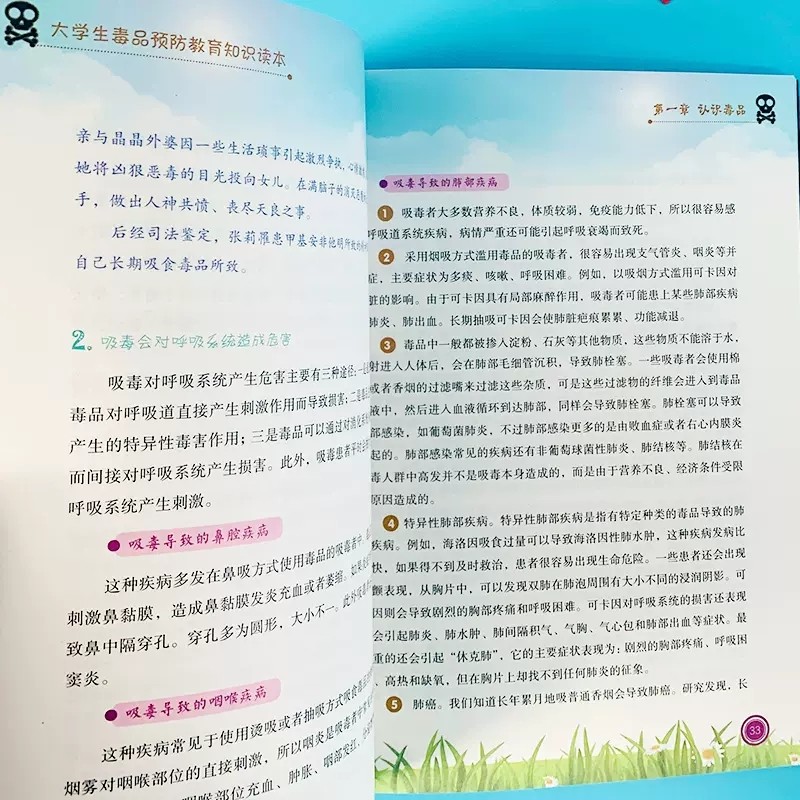 大学生毒品预防教育知识读本
亲与晶晶外婆因一些生活琐事引起激烈争执，心
她将凶狠恶毒的目光投向女儿。在满脑子的消
手，做出人神共愤、丧尽天良之事。
后经司法鉴定，张莉罹患甲基安非他明所致的
自己长期吸食毒品所致。
2。吸毒会对呼吸系统造成危害
吸毒对呼吸系统产生危害主要有三种途径：一
毒品对呼吸道直接产生刺激作用而导致损害；二
产生的特异性毒害作用；三是毒品可以通过对
而间接对呼吸系统产生损害。此外，吸毒患者平时
呼吸系统产生刺激。
吸毒导致的鼻腔疾病
这种疾病多发在鼻吸方式使用毒品的吸毒者中，
刺激鼻黏膜，造成鼻黏膜发炎充血或者萎缩。如果
致鼻中隔穿孔。穿孔多为圆形，大小不一。此外吸
窦炎。
吸毒导致的咽喉疾病
这种疾病常见于使用烫吸或者抽吸方式吸食毒
烟雾对咽喉部位的直接刺激，所以咽炎是吸毒者中
咽喉部位充血、肿胀、咽部发红、
第一章 认识毒品
吸毒导致的肺部疾病
1 吸毒者大多数营养不良，体质较弱，免疫能力低下，所以很容易感
呼吸道系统疾病，病情严重还可能引起呼吸衰竭而致死。
2 采用烟吸方式滥用毒品的吸毒者，很容易出现支气管炎、咽炎等并
症，主要症状为多痰、咳嗽、呼吸困难。例如，以吸烟方式滥用可卡因对
脏的影响。由于可卡因具有局部麻醉作用，吸毒者可能患上某些肺部疾病
肺炎、肺出血。长期抽吸可卡因会使肺脏疤痕累累、功能减退。
3 毒品中一般都被掺入淀粉、石灰等其他物质，这些物质不能溶于水，
射进入人体后，会在肺部毛细管沉积，导致肺栓塞。一些吸毒者会使用棉
或者香烟的过滤嘴来过滤这些杂质，可是这些过滤物的纤维会进入到毒品
液中，然后进入血液循环到达肺部，同样会导致肺栓塞。肺栓塞可以导致
部感染，如葡萄菌肺炎，不过肺部感染更多的是由败血症或者右心内膜炎
起的。肺部感染常见的疾病还有非葡萄球菌性肺炎、肺结核等。肺结核在
毒人群中高发并不是吸毒本身造成的，而是由于营养不良、经济条件受限
原因造成的。
4 特异性肺部疾病。特异性肺部疾病是指有特定种类的毒品导致的肺
疾病。例如，海洛因吸食过量可以导致海洛因性肺水肿，这种疾病发病比
快，如果得不到及时救治，患者很容易出现生命危险。一些患者还会出现
颤表现，从胸片中，可以发现双肺在肺泡周围有大小不同的浸润阴影。可
因则会导致剧烈的胸部疼痛和呼吸困难。可卡因对呼吸系统的损害还表现
会引起肺炎、肺水肿、肺间隔积气、气胸、气心包和肺部出血等症状。最
重的还会引起“休克肺”，它的主要症状表现为：剧烈的胸部疼痛、呼吸困
、高热和缺氧，但在胸片上却找不到任何肺炎的征象。
5 肺癌。我们知道长年累月地吸普通香烟会导致肺癌。研究发现，长
33